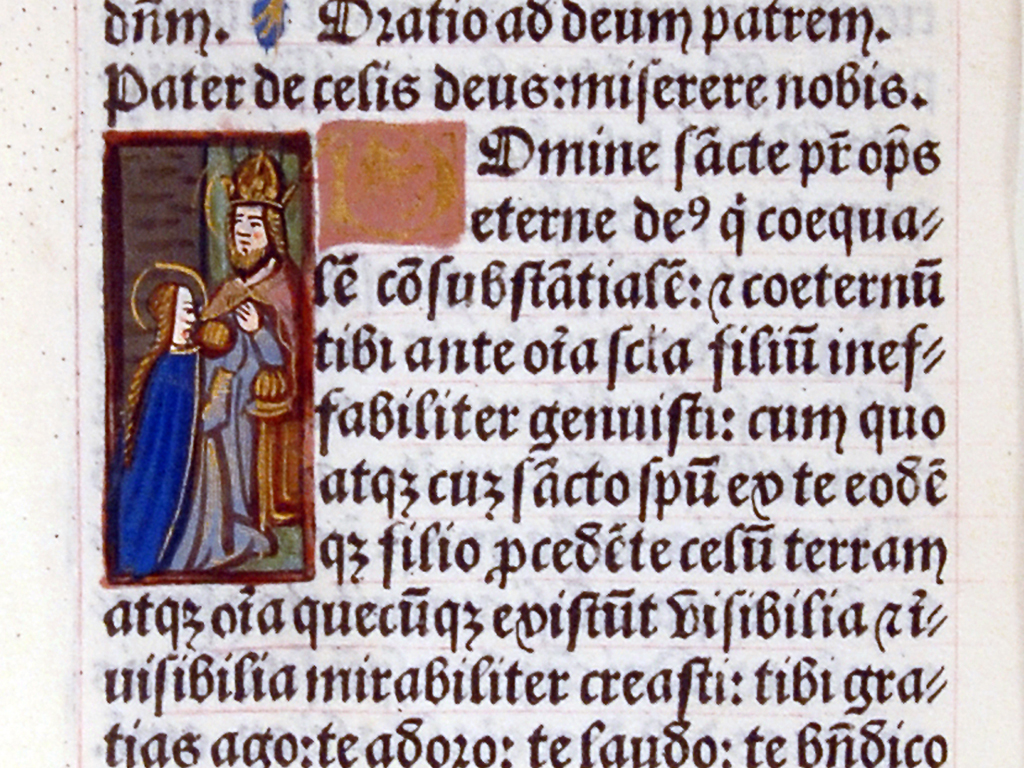 dn̄m. Oratio ad deum patrem.
Pater de celis deus: miserere nobis.
Dmine sācte pr̄ op̄s
eterne deꝰ q̇ coequa⸗
lē cōsubstātialē: ⁊ coeternū
tibi ante oīa scl̓a filiū inef⸗
fabiliter genuisti: cum quo
atqꝫ cuꝫ sācto spū ex te eodē
qꝫ filio ꝓcedēte celū terram
atqꝫ oīa quecūqꝫ existūt visibilia ⁊ ī⸗
uisibilia mirabiliter creasti: tibi gra⸗
tias ago: te adoro: te laudo: te bn̄dico